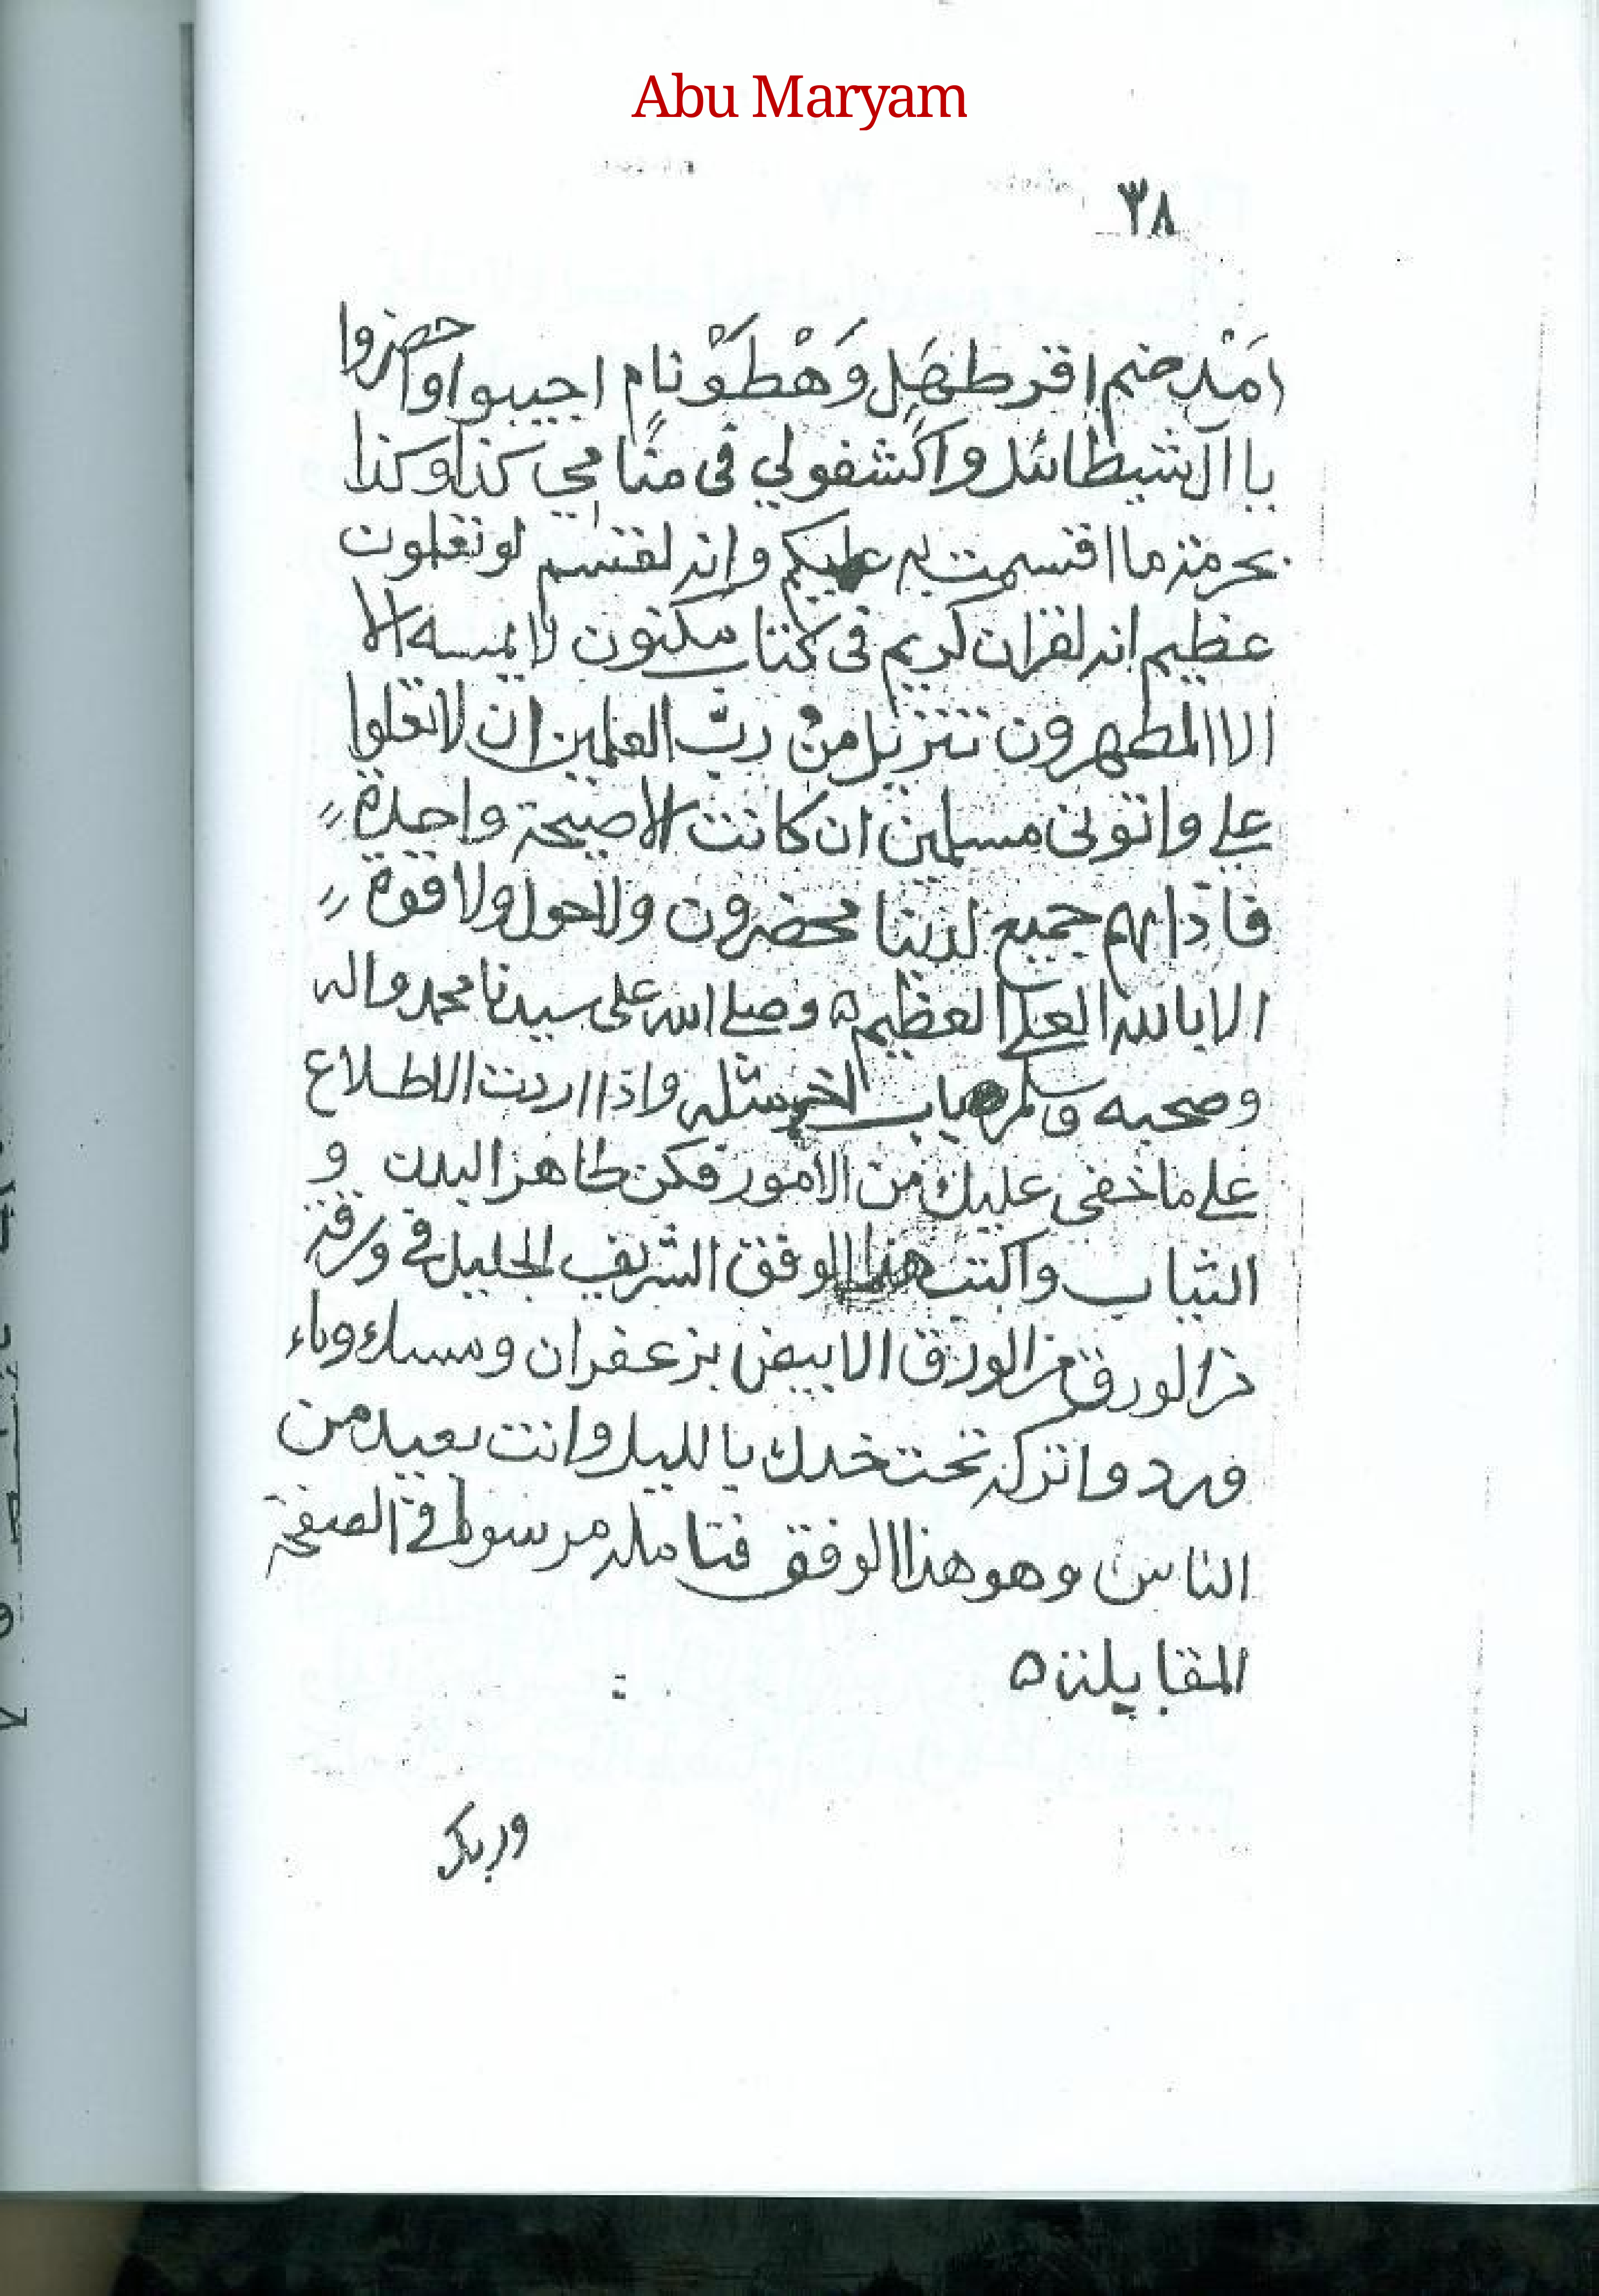 Abu Maryam
٣٨
امَدْ ضنم اقرطهَلٍ وَهْطَوْنَامٍ اجيبوا واحضروا
يا آل شيطائل واكشفولي فى منامي كذا وكذا
بحرمة ما اقتسمت به عليكم وانه لقتسم لو تعلون
عظيم انه لقران كريم فى كتاب مكنون لا يمسه الا
الا المطهرون تنزيل منْ ربّ العلمين ان لا تعلوا
علي واتونى مسلمين ان كانت الا صيحة واحدة
فاذاهم جميع لدينا محضرون ولاحول ولاقوة
الا بالله العلي العظيم ه وصلى الله على سيدنا محمد واله
وصحبه وسلم باب اخر مثله واذا اردت الاطلاع
على ما خفى عليك من الامور فكن طاهر البدن و
الثياب واكتب هذا الوفق الشريف الجليل في ورقة
من الورق الابيض بزعفران ومسك وماء
ورد واتركه تحت خدك بالليل وانت بعيد من
الناس وهو هذا الوفق فتامله مرسوما في الصفحة
المقابلة ه
وربك